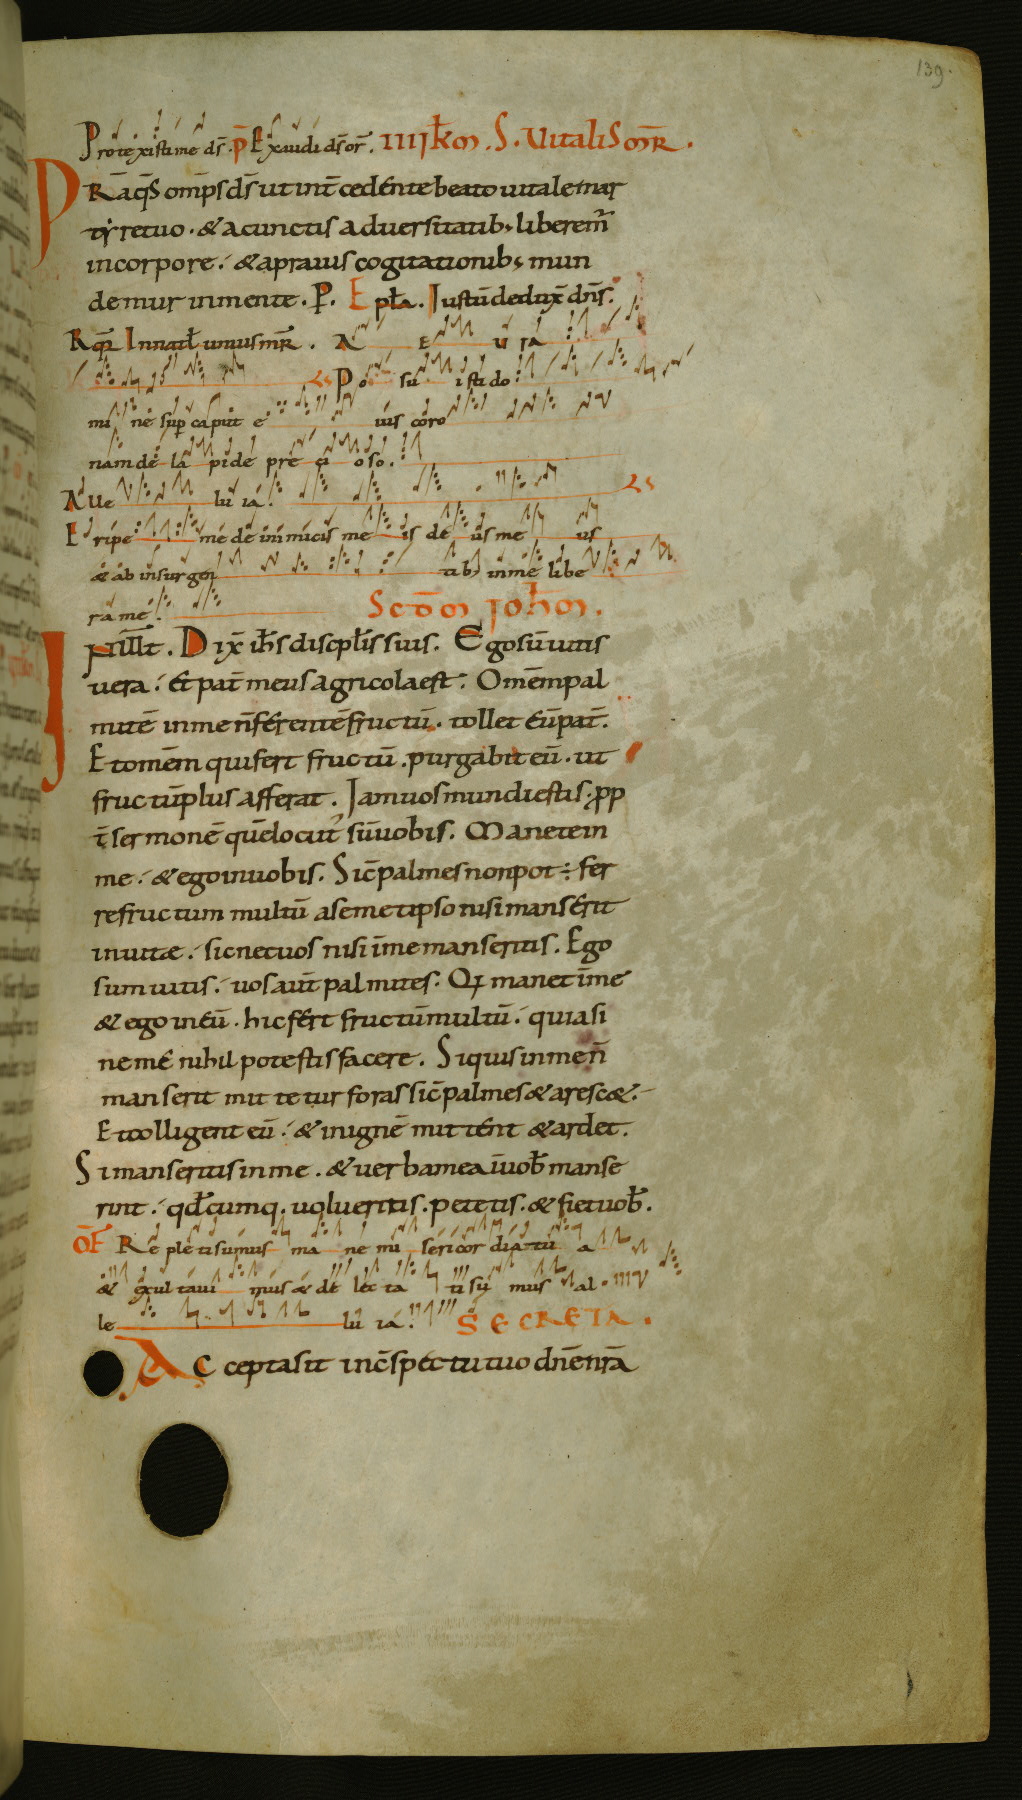 139.
Protexisti me ds̄. p̄ Exaudi ds̄ or̄. IIII k̄ m̄. S. VitaliS mr̄.
PRa q̄S omp̄s ds̄ ut int̄cedente beato uitale mar
tyre tuo. & a cunctis aduersitatib; liberem̄
in corpore. & a prauis cogitationib; mun
demur in mente. P. Epl̄a. Iustū dedux̄ dn̄s.
Rqr̄ In nat̄l unius mr̄. A E U IA
Po su isti do
mi ne sup̄ caput e ius coro
nam de la pide pre ci oso.
AUe lu ia.
Eripe me de inimicis me is de us me us
& ab insurgen tib; in me libe
ra me. Scd̄m Joh̄m.
In ill̄ t̄. Dix̄ ih̄s discpl̄is suis. Ego sū uitis
uera. Et pat̄ meus agricola est. Omēm pal
mitē in me n̄ ferentē fructū. tollet eū pat̄.
Et omēm qui fert fructū. purgabit eū. ut
fructū plus afferat. Iam uos mundi estis. prop
t̄ sermonē quē locut' sū uobis. Manete in
me. & ego in uobis. Sic̄ palmes non pot÷ fer
re fructum multū a semetipso nisi manserit
in uitæ. sic nec uos nisi īme manseritis. Ego
sum uitis. uos aut̄ palmites. Q; manet īme
& ego in eū. hic fert fructū multū. quia si
ne me nihil potestis facere. Si quis in me n̄
manserit mittetur foras sic̄ palmes & aresc&.
Et colligent eū. & in ignē mittent & ardet.
Si manseritis in me. & uerba mea ī uob̄ manse
rint. qd̄cumq. uolueritis. petetis. & fiet uob̄.
OF̄ Repleti sumus ma ne mi sericordia tu a
& exul taui mus & de lec ta ti su mus al
le lu ia. SECRETA.
Accepta sit in c̄spectu tuo dn̄e nr̄a